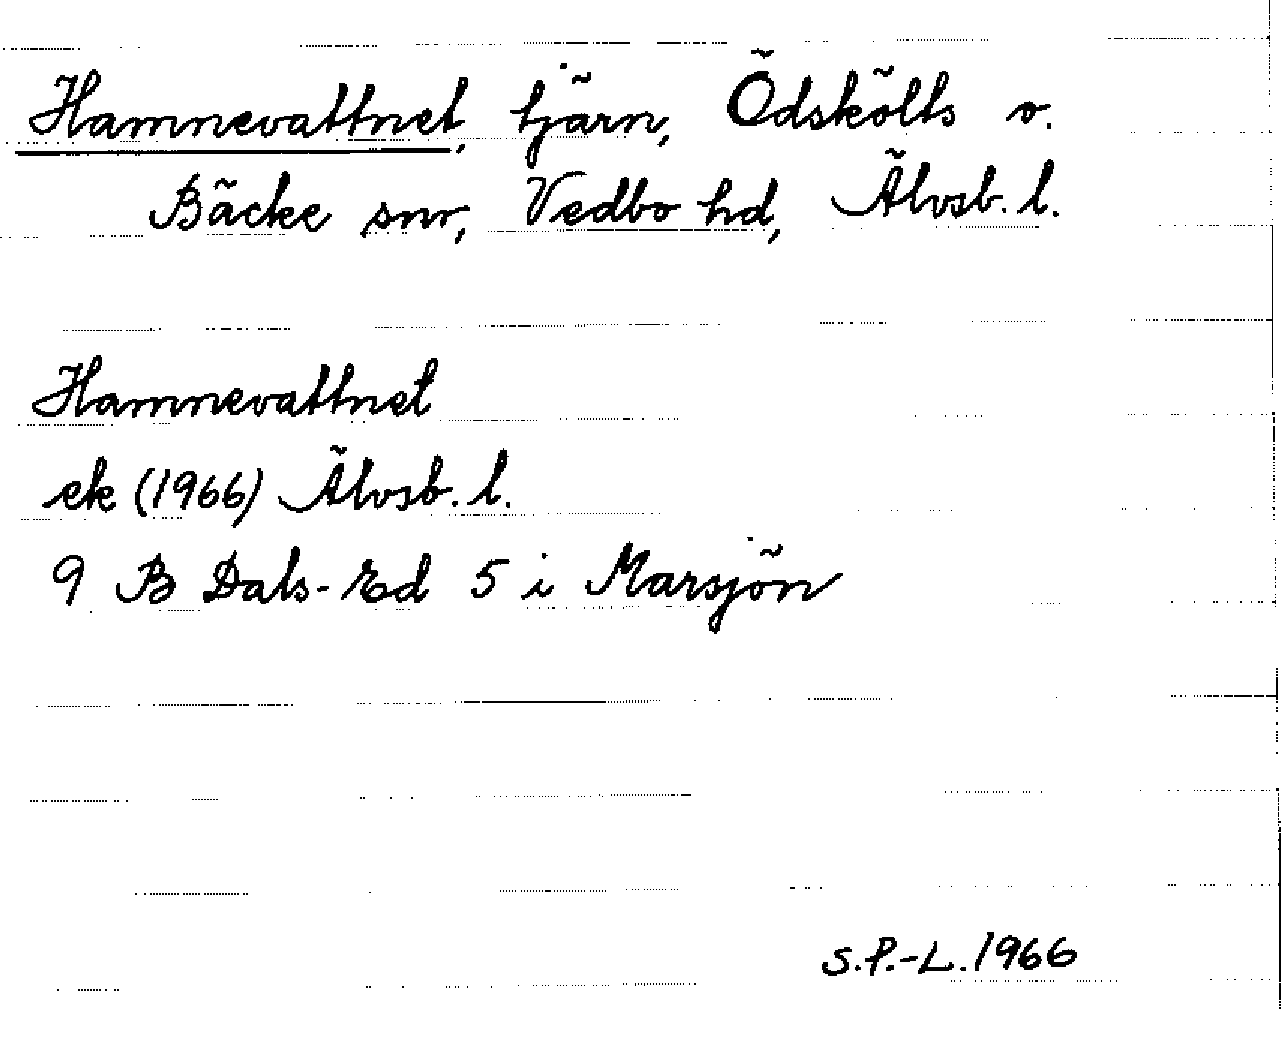 Hamnevattnet, tjärn, Ödskölts o.
Bäcke snr, Vedbo hd, Älvsb. l.
Hamnevattnet
ek (1966) Älvsb. l.
9 B Dals-Ed 5 i Marsjön
S.P.-L. 1966